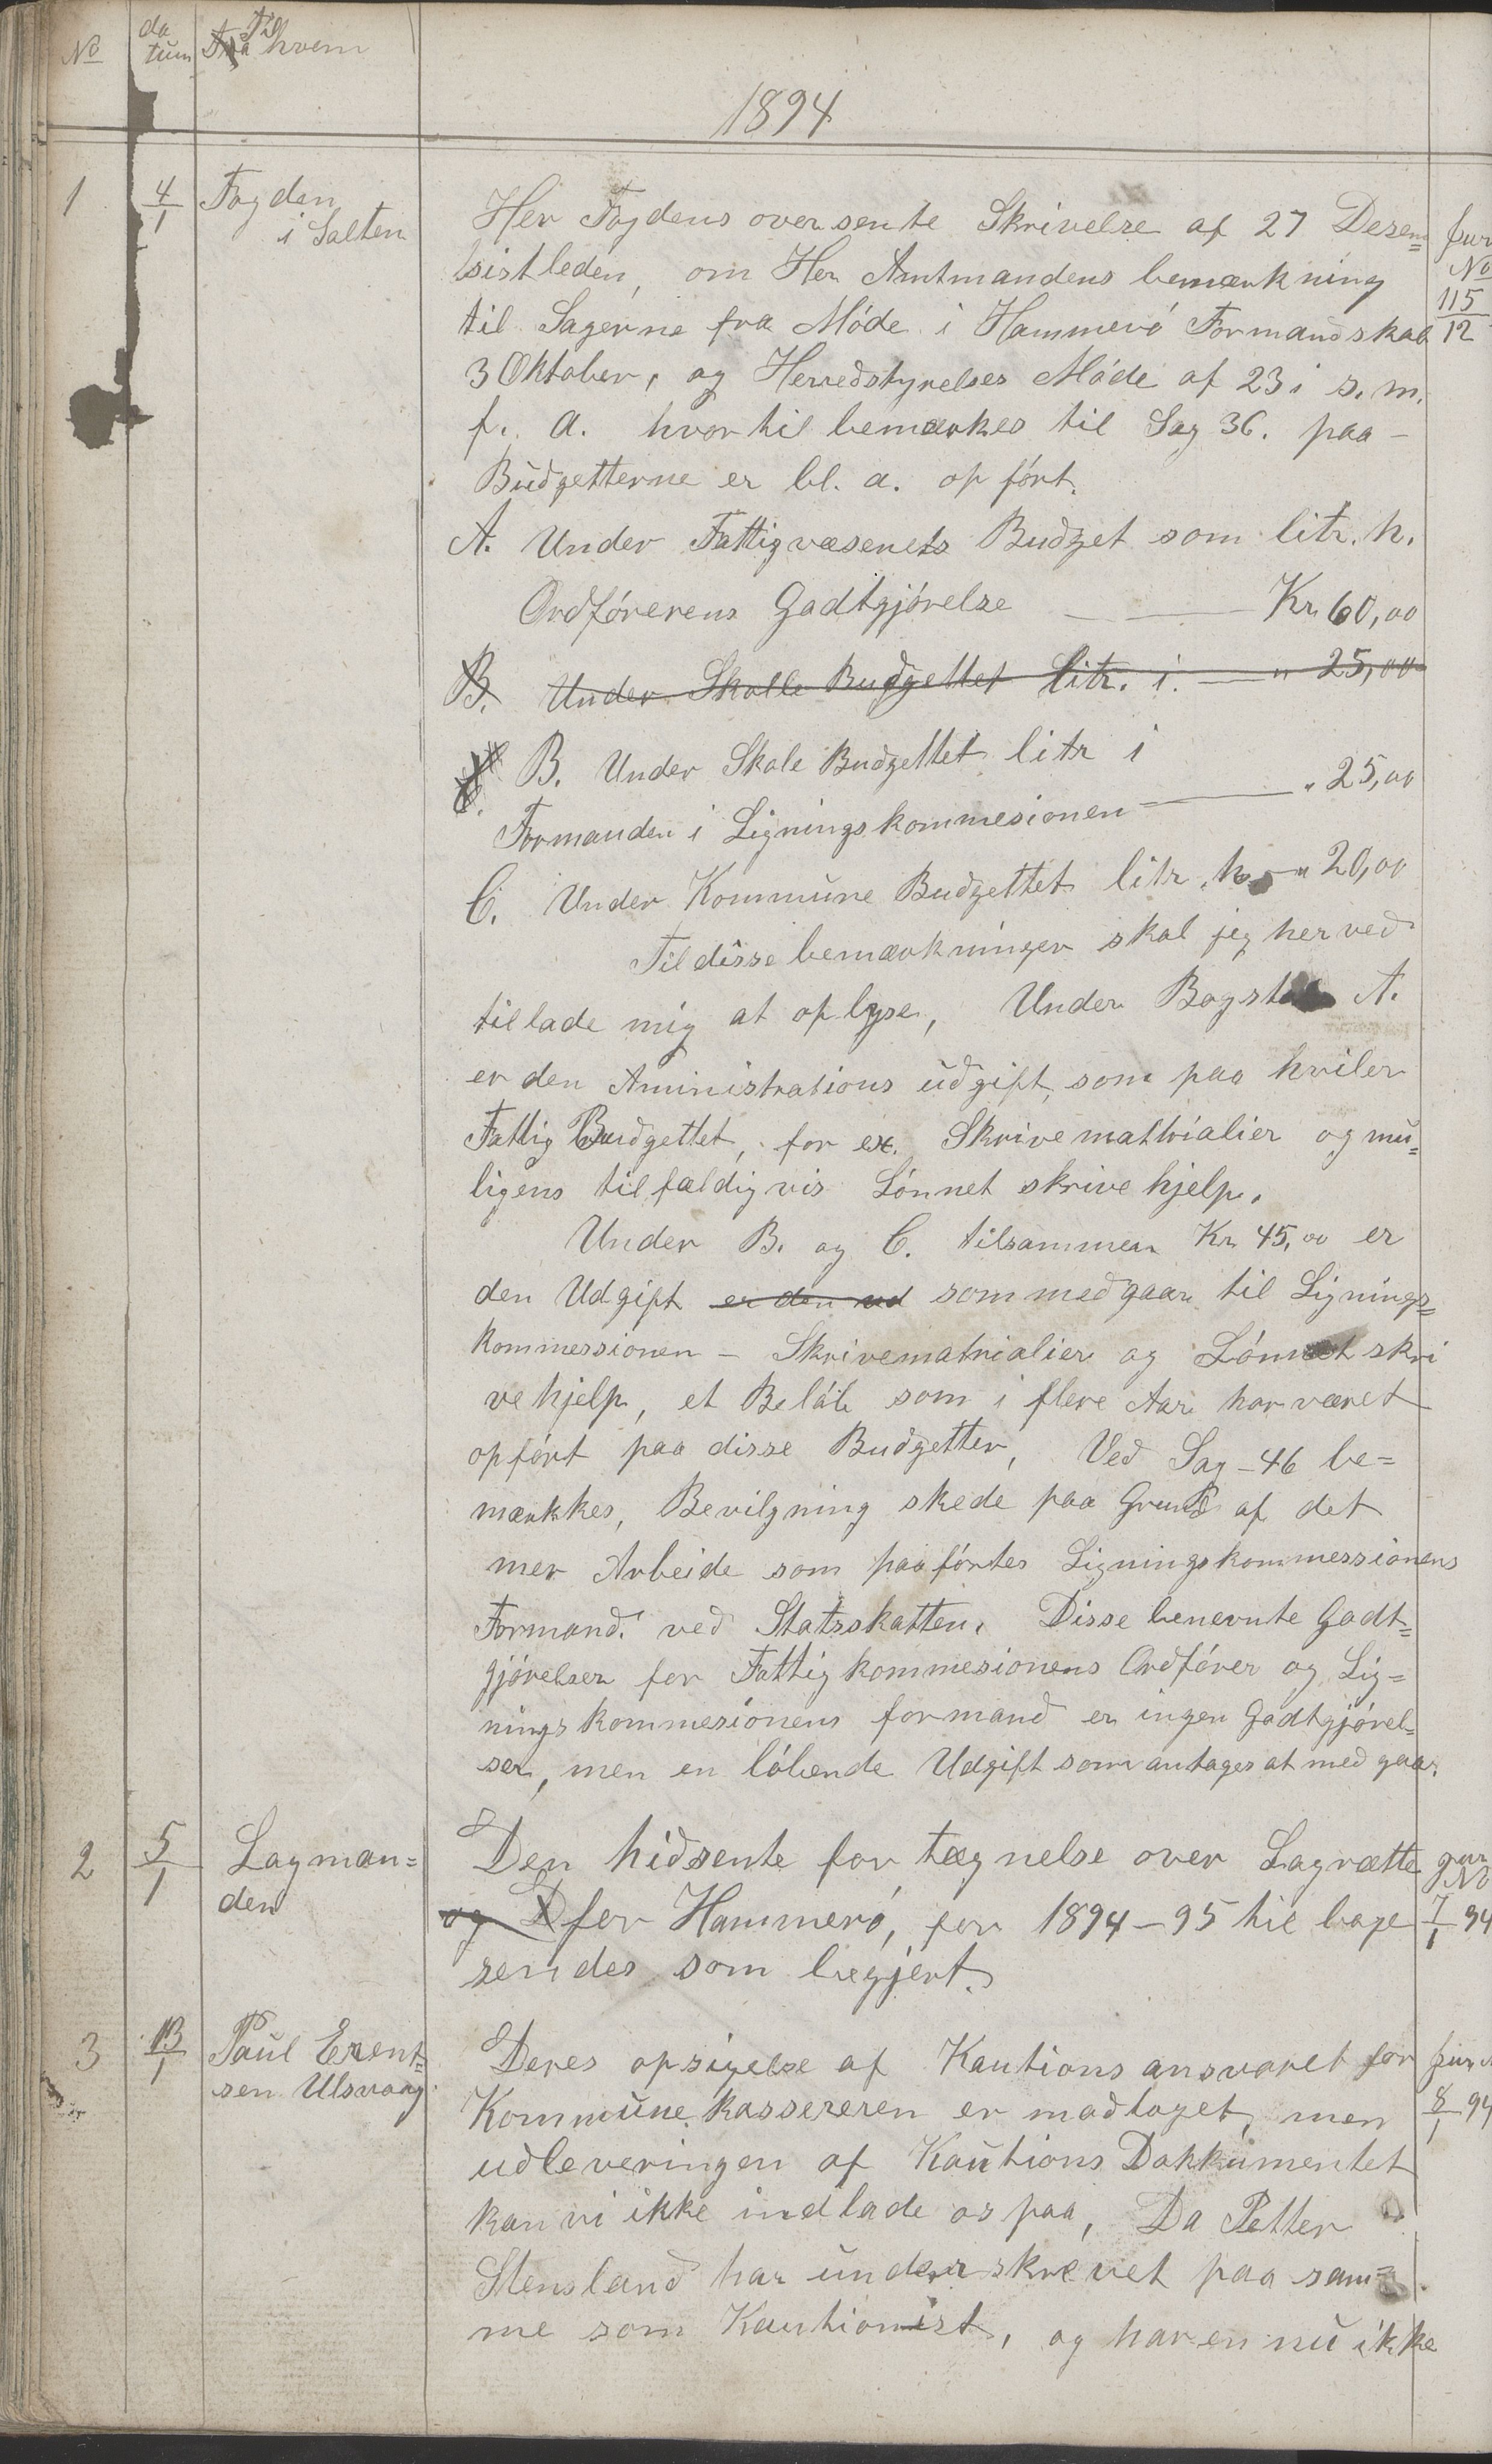 No datum Til hvem
1894
1 4/1 Fogden
i Salten
Her Fogdens oversente Skrivelse af 27 Desem=
sistleden, om Her Amtmandens bemærkning
til Sagerne fra Móde i Hammeró Formandskab
3 Oktober, og Herredstyrelses Móde af 23 i s. m.
f. a. hvortil bemærkes til Sag 36. paa –
Budgetterne er bl. a. opfórt.
A. Under Fattigvæsenets Budget som litr. h.
Ordfórerens Godtgjórelse — — Kr 60,00
B. Under Skolle Budgettet litr. i. — " 25,00
B. Under Skole Budgettet litr i
Formanden i Ligningskommesionen — " 25,00
C. Under Kommune Budgettet litr. h. – " 20,00
Til disse bemærkninger skal jeg herved
tillade mig at oplyse, Under Bogstav A.
er den Aministrations udgift, som paa hviler
Fattig Budgettet, for ex. Skrivemattrialier og mu=
ligens tilfældigvis Lónnet skrive hjelp.
Under B. og C. tilsammen Kr 45,00 er
den Udgift er den ud som medgaar til Lignings=
kommessionen – Skrivematrialier og Lónnet skri
ve hjelp, et Belób som i flere Aar har været
opfórt paa disse Budgetter, Ved Sag – 46 be=
mærkkes, Bevilgning skede paa Grund af det
mer Arbeide som paafórtes Ligningskommessionens
Formand. ved Statsskatten. Disse benevnte Godt=
gjórelser for Fattigkommesionens Ordfórer og Lig=
ningskommesionens formand er ingen Godtgjórel=
ser, men en lóbende Udgift som antages at med gaar.
2 5/1 Lagman=
den
Den hidsente for tægnelse over Lagrætte
og D for Hammeró, for 1894–95 til bage
sendes som begjert.
3 13/1 Paul Erent=
sen Ulsvaag
Deres opsigelse af Kautions ansvaret for
Kommune kassereren er modtaget, men
udleveringen af Kautions Dokkumentet
kan vi ikke indlade os paa, Da Petter
Stensland har underskrevet paa sam=
me som Kautionist, og har en nu ikke
jur
No
115/12
jur
No
7/1 94
jur
8/1 94